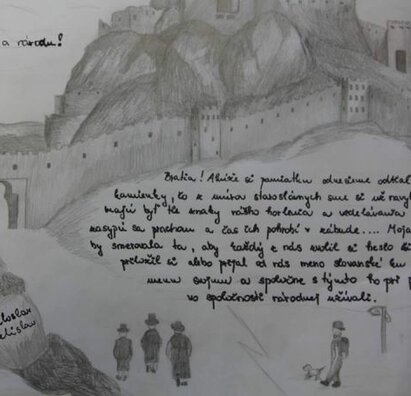 a národu!
Bratia! Akože si pamiatku odnesieme odtiaľ
kamienky, to z múru staroslávnych sme si už navyk
majú byť tke znaky nášho horlenia a vzdelávania
zasypú sa prachom a čas ich pohrobí v zábude.... Moja
by smerovala ta, aby každý z nás zvolil si heslo
priložil si alebo prijal od nás meno slovanské ku
menu svojmu a spoločne s týmto ho pri
vo spoločnosti národnej užívali.